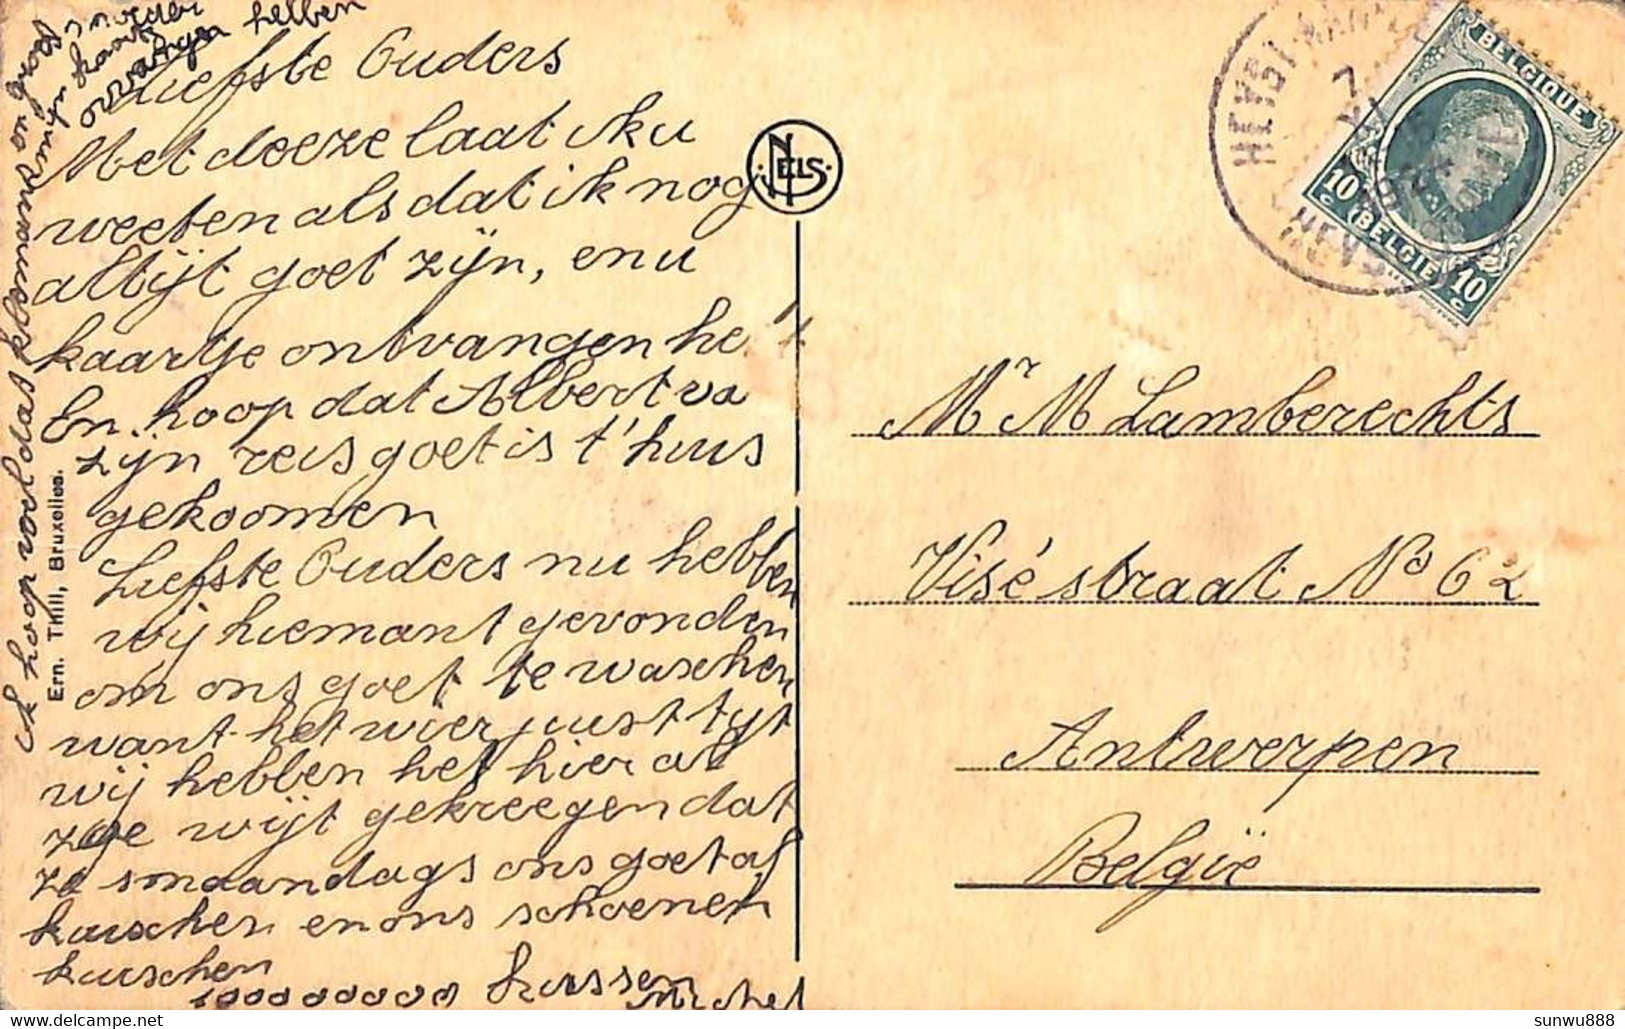 Liefste Ouders
Met deeze laat ik u
weeten als dat ik nog
altijt goet zijn, en u
kaartje ontvangen he
En hoop dat Albert va
zijn reis goet is t'huis
gekoomen
Liefste Ouders nu hebben
wij niemant gevonden
om ons goet te waschen
want het wier juist tijt
wij hebben het hier al
zoe wijt gekreegen dat
ze smaandags ons goet af
kuischen en ons schoenen
kuischen
1000000000 kussen
Michel
ik hoop voel das Kloomans on groot
smoeder
mijn kaart
ovvangen hebben
Ern. Thill, Bruxelles.
NELS
HEYST
BELGIQUE
10c BELGIE 10c
Mr M Lamberechts
Visé straat No 62
Antwerpen
België
sunwu888